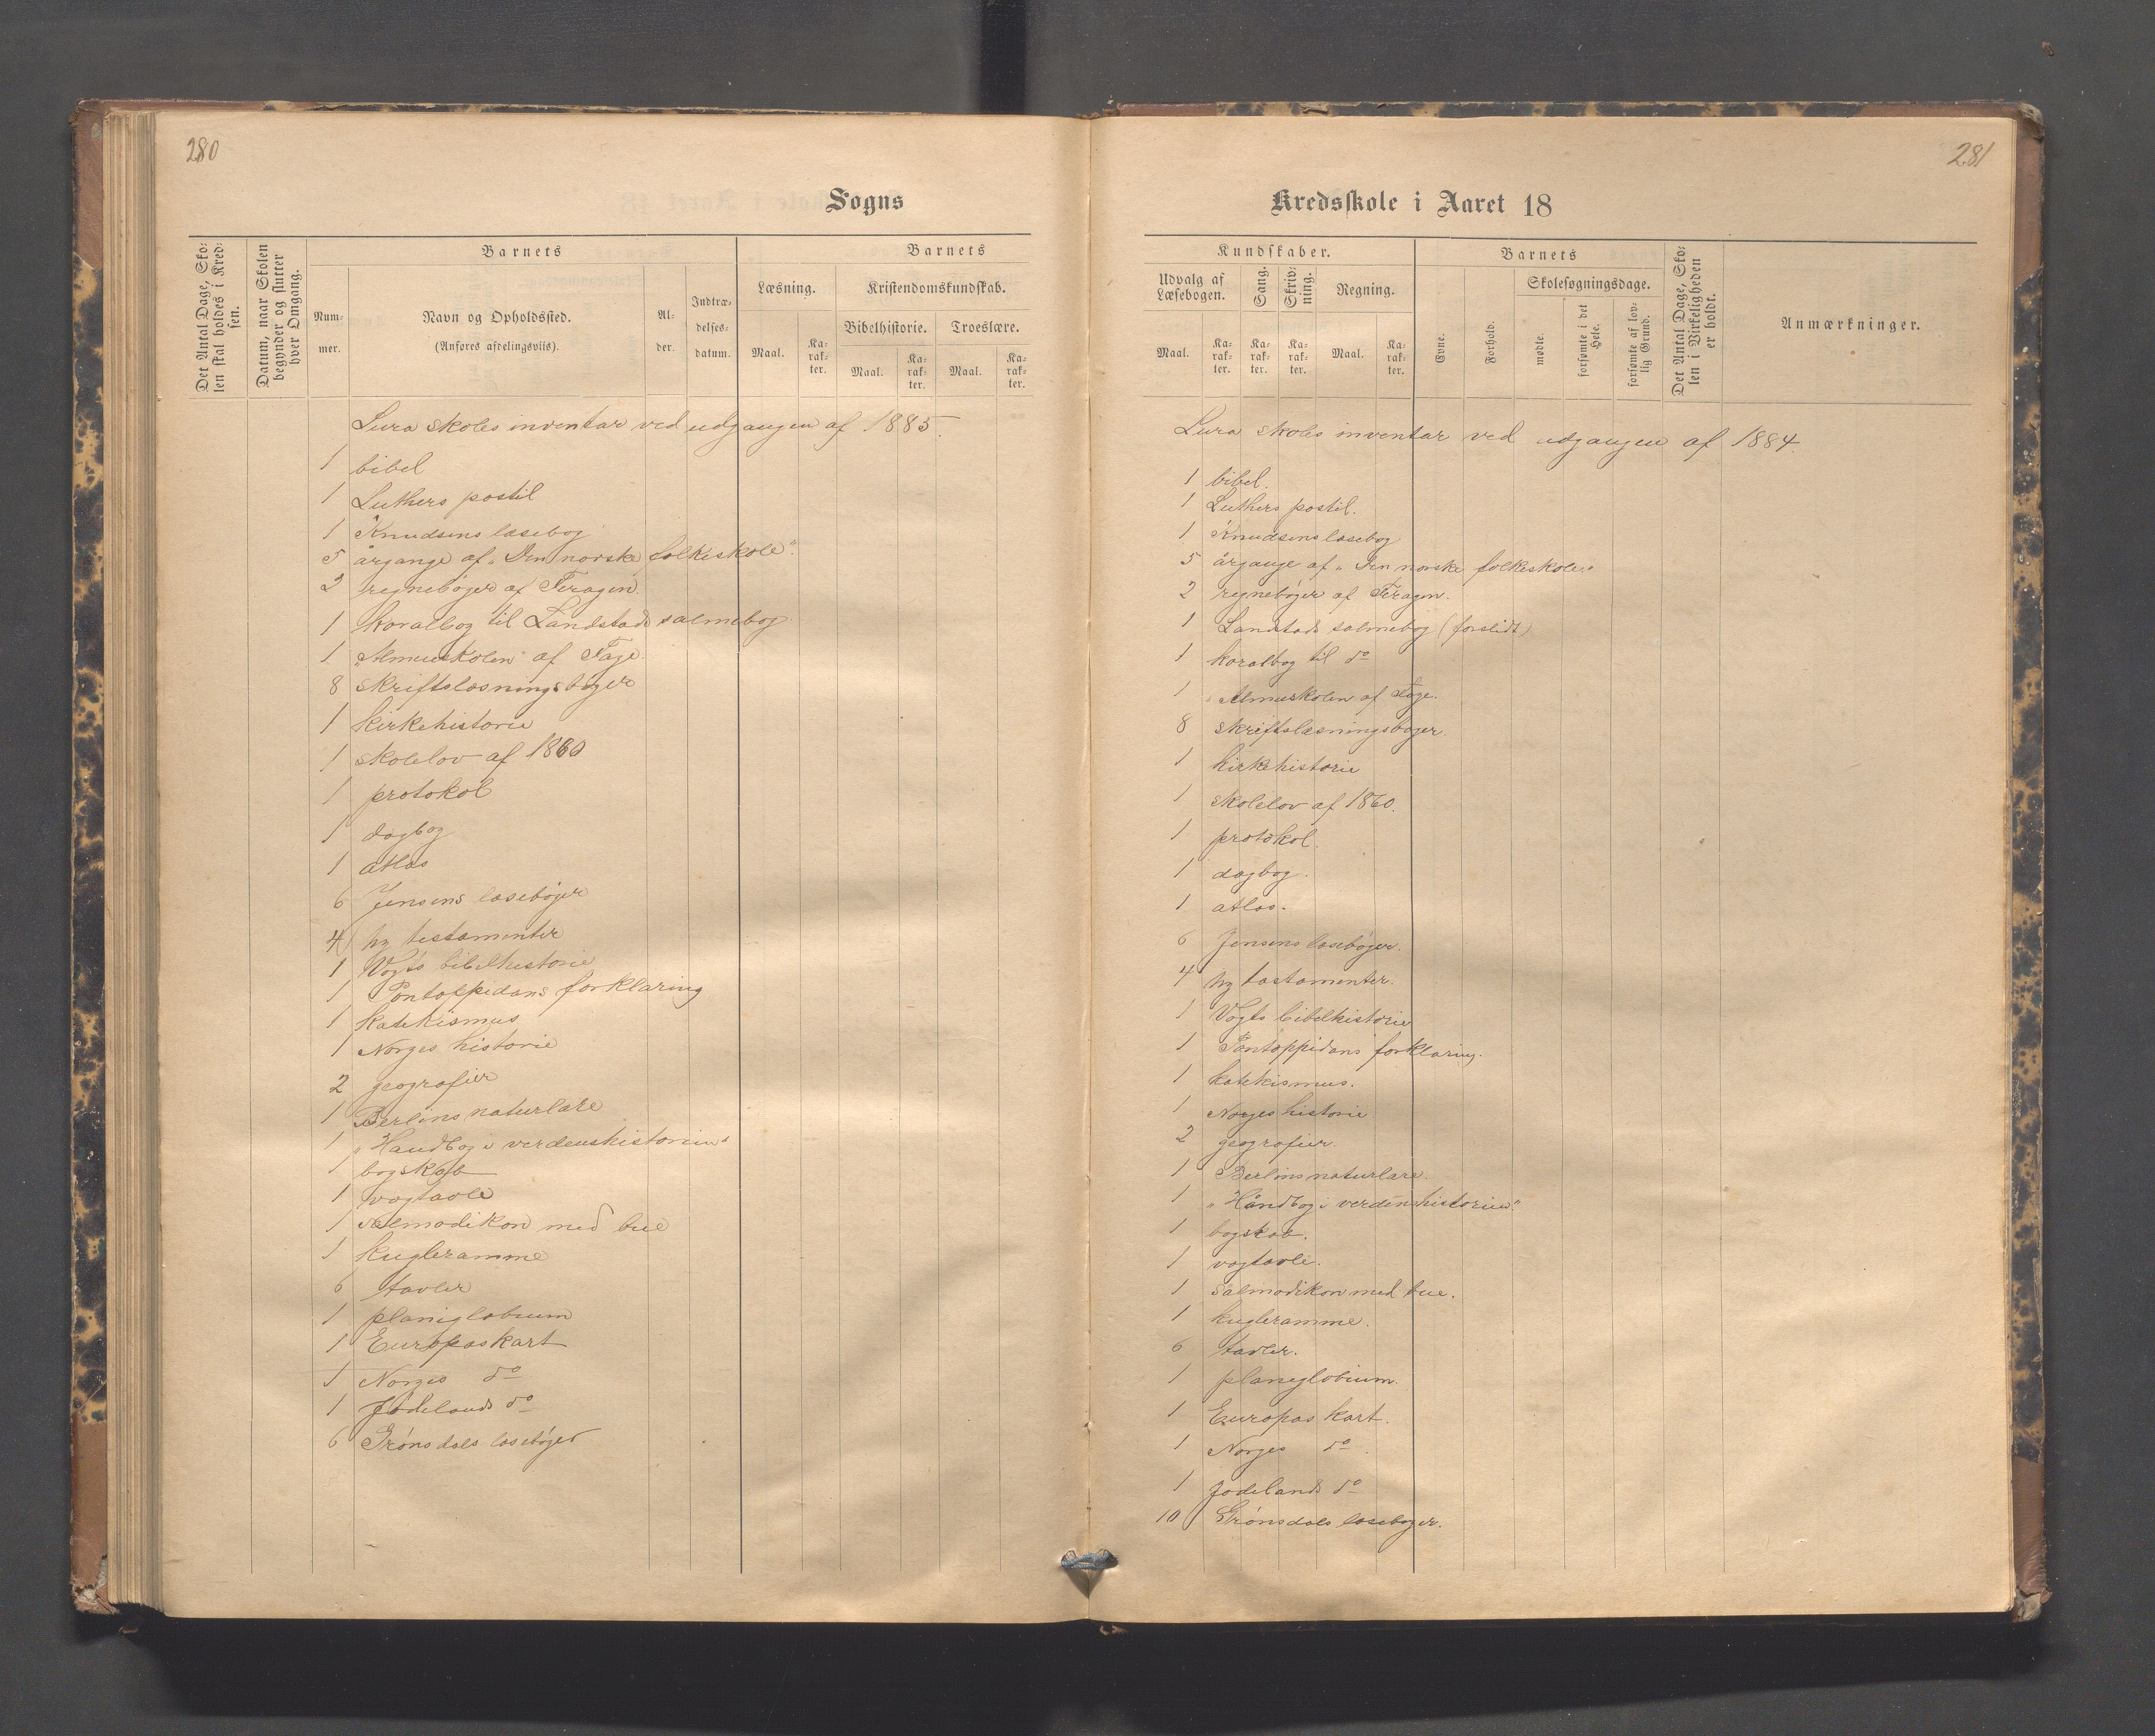 280
Sogns
Det Antal Dage, Skolen skal holdes i Kredsen.
Datum, naar Skolen begynder og slutter hver Omgang.
Barnets
Nummer.
Navn og Opholdssted.
(Anføres afdelingsviis).
Alder.
Indtrædelsesdatum.
Læsning.
Maal.
Karakter.
Barnets
Kristendomskundskab.
Bibelhistorie.
Maal.
Karakter.
Troeslære.
Maal.
Karakter.
Lura skoles inventar ved udgangen af 1883.
1 bibel
1 Luthers postil
1 Knudsens læsebog
5 årgange af „Den norske folkeskole“.
2 regnebøger af Feragen.
1 koralbog til Landstads salmebog
1 „Almueskolen“ af Fage.
8 skriftslæsningsbøger
1 kirkehistorie
1 skolelov af 1860
1 protokol
1 dagbog
1 atlas
6 Jensens læsebøger
4 ny testamenter
1 Vogts bibelhistorie
1 Pontoppidans forklaring
1 katekismus
1 Norges historie
2 geografier
1 Berlins naturlære
1 „Handbog i verdenshistorien“
1 bogskab
1 vægtavle
1 salmodikon med bue
1 kugleramme
6 tavler
1 planiglobium
1 Europas kart
1 Norges do
1 Jødelands do
6 Grønsdals læsebøger
281
Kredsskole i Aaret 18
Kundskaber.
Udvalg af Læsebogen.
Maal.
Karakter.
Sang.
Karakter.
Skrivning.
Karakter.
Regning.
Maal.
Karakter.
Barnets
Evne.
Forhold.
Skolesøgningsdage.
mødte.
forsømte i det Hele.
forsømte af lovlig Grund.
Det Antal Dage, Skolen i Virkeligheden er holdt.
Anmærkninger.
Lura skoles inventar ved udgangen af 1884.
1 bibel.
1 Luthers postil.
1 Knudsens læsebog
5 årgange af „Den norske folkeskole“
2 regnebøger af Feragen.
1 Landstads salmebog (forslidt)
1 koralbog til do
1 Almueskolen af Fage.
8 skriftslæsningsbøger.
1 kirkehistorie
1 skolelov af 1860.
1 protokol.
1 dagbog.
1 atlas.
6 Jensens læsebøger.
4 ny testamenter.
1 Vogts bibelhistorie
1 Pontoppidans forklaring.
1 katekismus.
1 Norges historie
2 geografier.
1 Berlins naturlære.
1 „Håndbog i verdenshistorien“.
1 bogskab.
1 vægtavle.
1 salmodikon med bue.
1 kugleramme.
6 tavler.
1 planiglobium.
1 Europas kart.
1 Norges do.
1 Jødelands do
10 Grønsdals læsebøger.